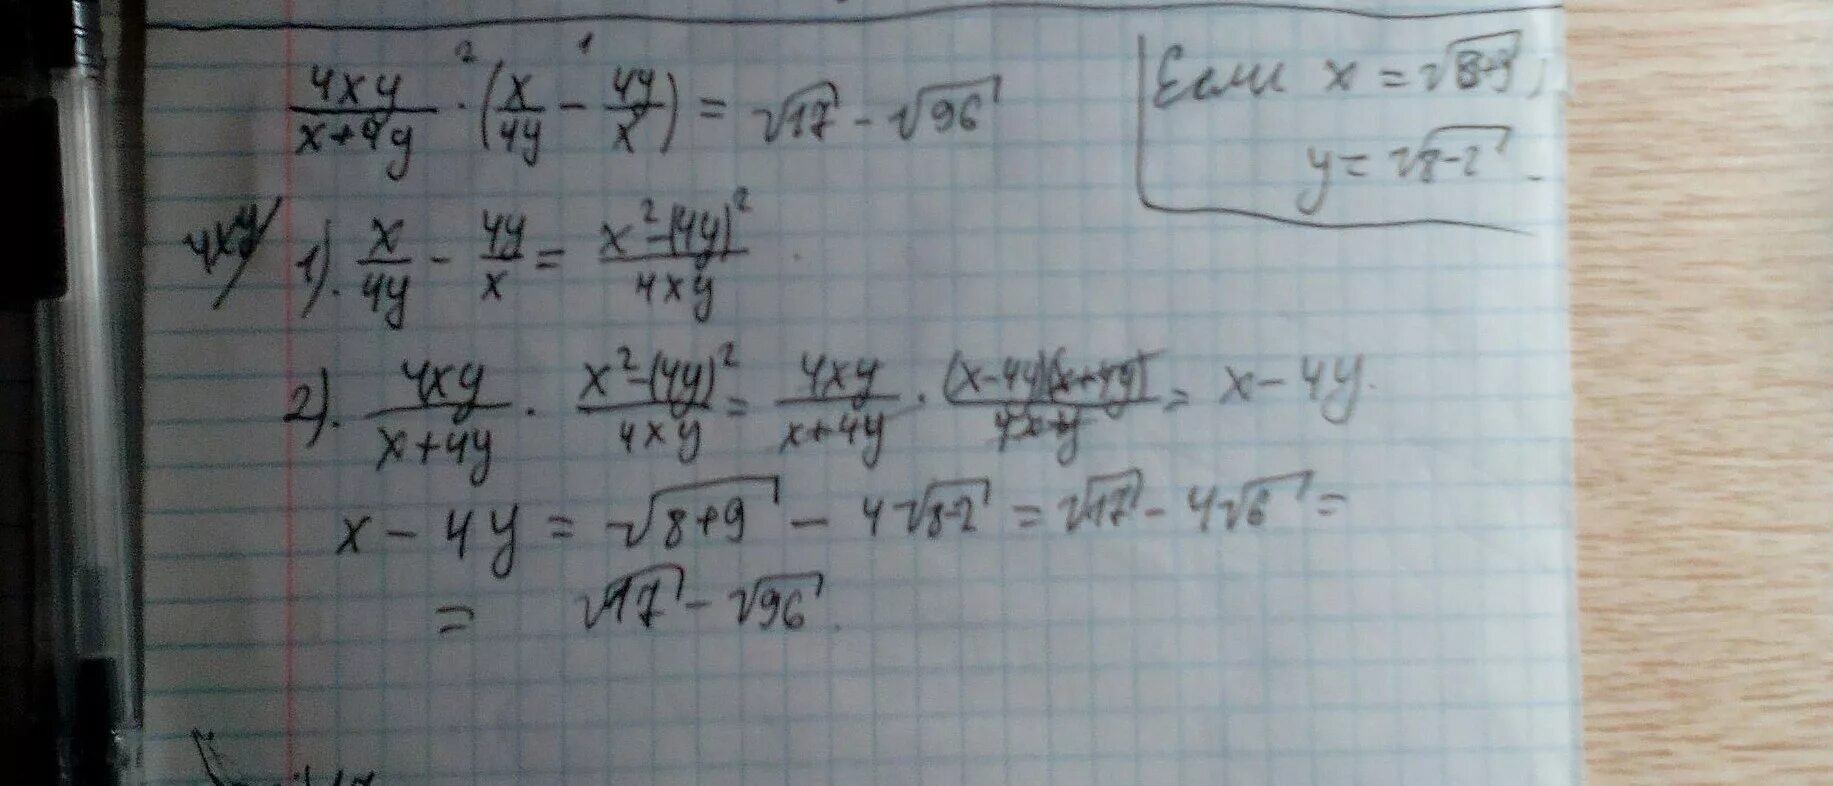 4xy/(x+4y) ·² (x/4y −¹ 4y/x) = √17 − √96
Если x = √8+9,
y = √8−2.
4xy 1). x/4y − 4y/x = (x²−(4y)²)/4xy
2). 4xy/(x+4y) · (x²−(4y)²)/4xy = 4xy/(x+4y) · (x−4y)(x+4y)/4xy = x − 4y.
x − 4y = √8+9 − 4√8−2 = √17 − 4√6 =
= √17 − √96.